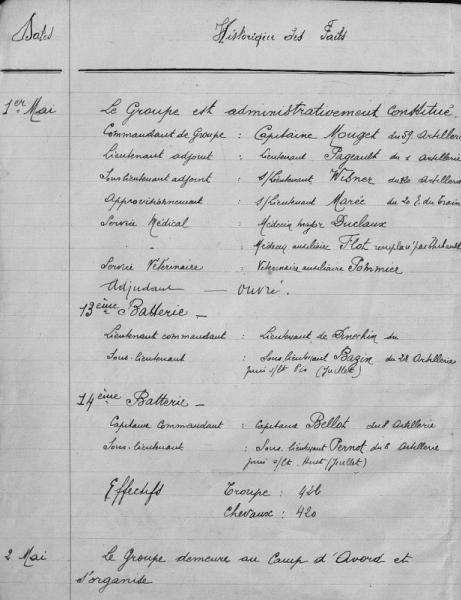 Dates Historique des Faits
1er Mai Le Groupe est administrativement constitué.
Commandant de Groupe : Capitaine Mouget du 59 Artillerie
Lieutenant adjoint : Lieutenant Pageault du 1 Artillerie
Sous lieutenant adjoint : S/Lieutenant Wisner du 20 Artillerie
Approvisionnement : S/Lieutenant Marée du 20 E. du train
Service Médical : Médecin major Duclaux
" : Médecin auxiliaire Flot remplacé par
Service Vétérinaire : Vétérinaire auxiliaire Pommier
Adjudant — Ouvré.
13ème Batterie —
Lieutenant commandant : Lieutenant de du
Sous-lieutenant : Sous-lieutenant Bazin du 28 Artillerie
puis s/Lt (Juillet)
14ème Batterie —
Capitaine Commandant : Capitaine Bellot du 8 Artillerie
Sous-lieutenant : Sous-lieutenant Pernot du 8 Artillerie
puis s/Lt. (Juillet)
Effectifs Troupe :
Chevaux : 420
2 Mai Le Groupe demeure au Camp d'Avord et
s'organise